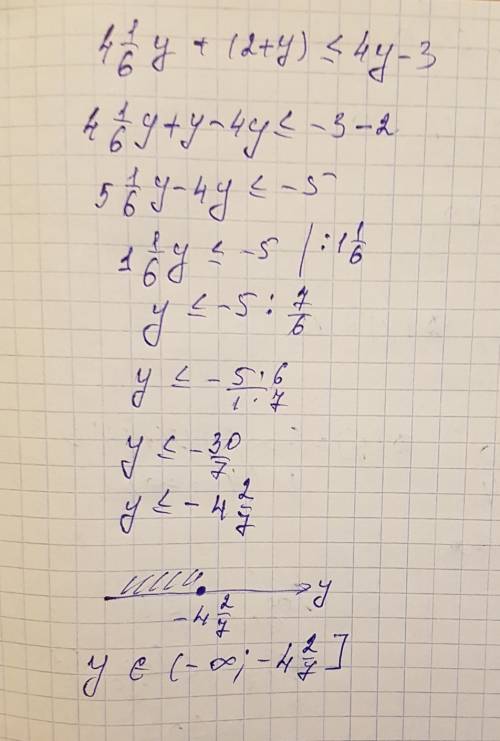 4 1/6 y + (2+y) ≤ 4y-3
4 1/6 y+y-4y ≤ -3-2
5 1/6 y-4y ≤ -5
1 1/6 y ≤ -5 / :1 1/6
y ≤ -5 : 7/6
y ≤ - 5·6/1·7
y ≤ - 30/7
y ≤ - 4 2/7
y
-4 2/7
y ∈ (-∞; -4 2/7]